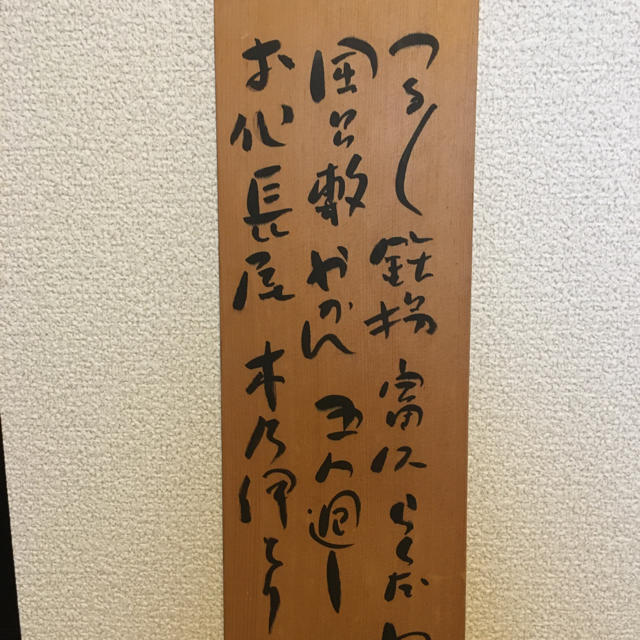 つるし 鉄拐 富久 らくだ
風呂敷 やかん 五人廻し
お化長屋 木乃伊とり